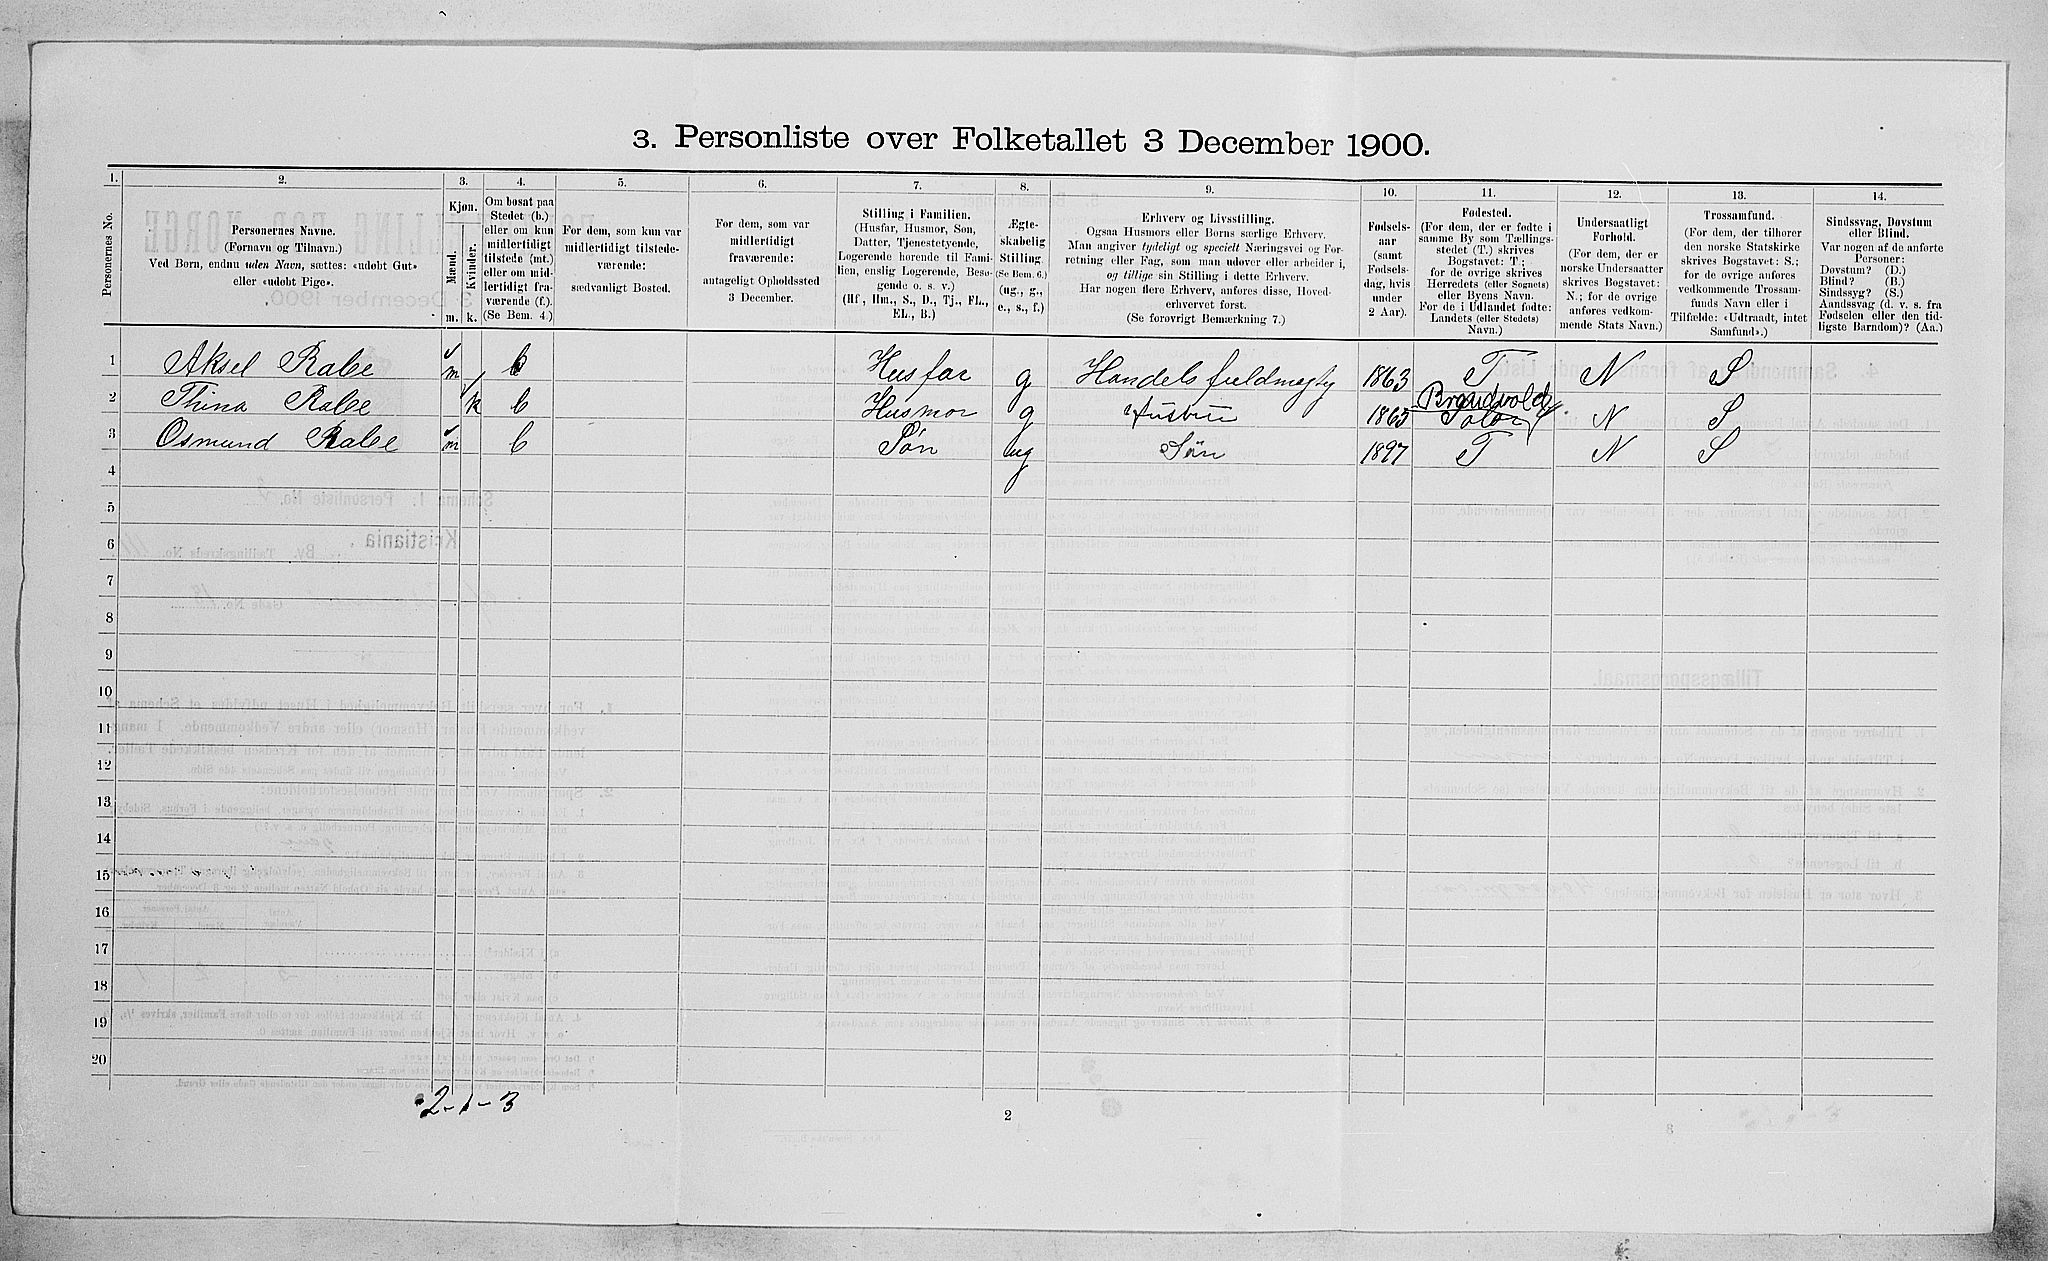 3. Personliste over Folketallet 3 December 1900.
1. 2. 3. 4. 5. 6. 7. 8. 9. 10. 11. 12. 13. 14.
Personernes No.
Personernes Navne.
(Fornavn og Tilnavn.)
Ved Børn, endnu uden Navn, sættes: «udøbt Gut»
eller «udøbt Pige».
Kjøn.
Mænd.
Kvinder.
m. k.
Om bosat paa
Stedet (b.)
eller om kun
midlertidigt
tilstede (mt.)
eller om mid-
lertidigt fra-
værende (f.).
(Se Bem. 4.)
For dem, som kun var
midlertidigt tilstede-
værende:
sædvanligt Bosted.
For dem, som var
midlertidigt
fraværende:
antageligt Opholdssted
3 December.
Stilling i Familien.
(Husfar, Husmor, Søn,
Datter, Tjenestetyende,
Logerende hørende til Fami-
lien, enslig Logerende, Besø-
gende o. s. v.)
(Hf., Hm., S., D., Tj., FL.,
EL., B.)
Ægte-
skabelig
Stilling.
(Se Bem. 6.)
(ug., g.,
e., s., f.)
Erhverv og Livsstilling.
Ogsaa Husmors eller Børns særlige Erhverv.
Man angiver tydeligt og specielt Næringsvei og For-
retning eller Fag, som man udøver eller arbeider i,
og tillige sin Stilling i dette Erhverv.
Har nogen flere Erhverv, anføres disse, Hoved-
erhvervet først.
(Se forøvrigt Bemærkning 7.)
Fødsels-
aar
(samt
Fødsels-
dag, hvis
under
2 Aar).
Fødested.
(For dem, der er fødte i
samme By som Tællings-
stedet (T.) skrives
Bogstavet: T;
for de øvrige skrives
Herredets (eller Sognets)
eller Byens Navn.
For de i Udlandet fødte:
Landets (eller Stedets)
Navn.)
Undersaatligt
Forhold.
(For dem, der er
norske Undersaatter
skrives Bogstavet:
N.; for de øvrige
anføres vedkom-
mende Stats Navn.)
Trossamfund.
(For dem, der tilhører
den norske Statskirke
skrives Bogstavet: S.;
for de øvrige anføres
vedkommende Trossam-
funds Navn eller i
Tilfælde: «Udtraadt, intet
Samfund».)
Sindssvag, Døvstum
eller Blind.
Var nogen af de anførte
Personer:
Døvstum? (D.)
Blind? (B.)
Sindssyg? (S.)
Aandssvag (d. v. s. fra
Fødselen eller den tid-
ligste Barndom)? (Aa.)
1 Aksel Rabe m b Husfar g Handelsfuldmægtig 1863 T N S
2 Thina Rabe k b Husmor g Hustru 1865 Brandvold Solør N S
3 Osmund Rabe m b Søn ug Søn 1897 T N S
4
5
6
7
8
9
10
11
12
13
14
15
16
17
18
19
20
2-1-3
2